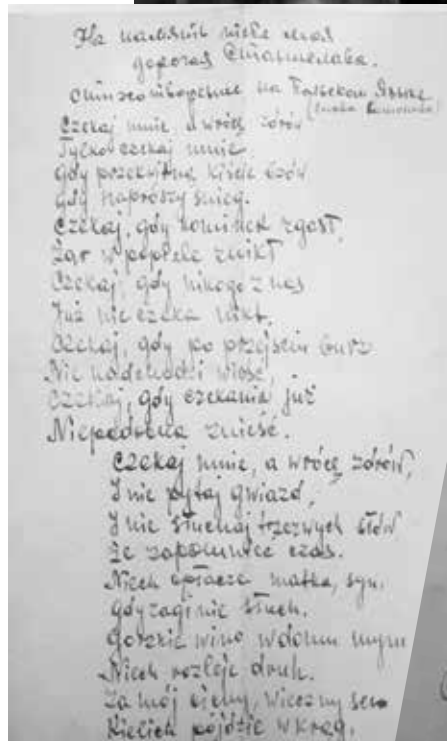 На память
дорогая Станислава.
стихотворение на Польском языке
Czekaj mnie, a wrócę zdrów
Tylko czekaj mnie
Gdy przekwitną kiście bzów
gdy naprószy śnieg.
Czekaj, gdy kominek zgasł,
Żar w popiele znikł
Czekaj, gdy nikogo z nas
Już nie czeka nikt.
Czekaj, gdy po przejściu burz
Nie nadchodzi wieść,
Czekaj, gdy czekania już
Niepodobna znieść.
Czekaj mnie, a wrócę zdrów,
I nie pytaj gwiazd,
I nie słuchaj trzezwych słów
Że zapomnieć czas.
Niech opłacze matka, syn,
gdy zaginie słuch.
Gorzkie wino w domu mym
Niech rozleje druh.
Za mój ciemny, wieczny sen
Kielich pójdzie w krąg,